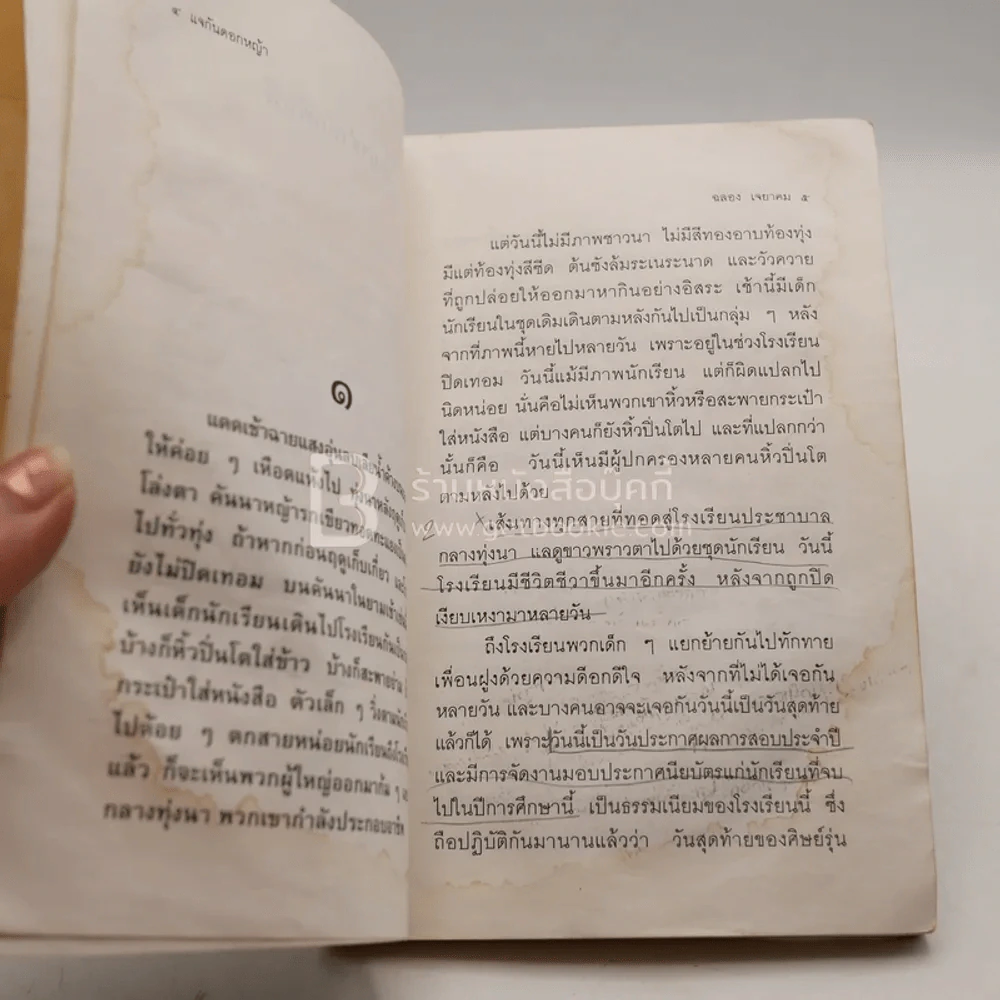 ๔ แจกันดอกหญ้า
๑
แดดเช้าฉายแสง
ให้ค่อย ๆ เหือดแห้งไป ทุ่งนาหลัง
โล่งตา คันนาหญ้ารกเขียวทอด
ไปทั่วทุ่ง ถ้าหากก่อนฤดูเก็บเกี่ยว
ยังไม่ปิดเทอม บนคันนาในยามเช้า
เห็นเด็กนักเรียนเดินไปโรงเรียนกัน
บ้างก็หิ้วปิ่นโตใส่ข้าว บ้างก็สะพาย
กระเป๋าใส่หนังสือ ตัวเล็ก ๆ วิ่งตาม
ไปต้อย ๆ ตกสายหน่อยนักเรียน
แล้ว ก็จะเห็นพวกผู้ใหญ่ออกมาก้ม ๆ
กลางทุ่งนา พวกเขากำลังประกอบอาชีพ
ฉลอง เจยาคม ๕
แต่วันนี้ไม่มีภาพชาวนา ไม่มีสีทองอาบท้องทุ่ง
มีแต่ท้องทุ่งสีซีด ต้นซังล้มระเนระนาด และวัวควาย
ที่ถูกปล่อยให้ออกมาหากินอย่างอิสระ เช้านี้มีเด็ก
นักเรียนในชุดเดิมเดินตามหลังกันไปเป็นกลุ่ม ๆ หลัง
จากที่ภาพนี้หายไปหลายวัน เพราะอยู่ในช่วงโรงเรียน
ปิดเทอม วันนี้แม้มีภาพนักเรียน แต่ก็ผิดแปลกไป
นิดหน่อย นั่นคือไม่เห็นพวกเขาหิ้วหรือสะพายกระเป๋า
ใส่หนังสือ แต่บางคนก็ยังหิ้วปิ่นโตไป และที่แปลกกว่า
นั้นก็คือ วันนี้เห็นมีผู้ปกครองหลายคนหิ้วปิ่นโต
ตามหลังไปด้วย
ร้านหนังสือบุ๊คกี้
www.getbookie.com
2 เส้นทางทุกสายที่ทอดสู่โรงเรียนประชาบาล
กลางทุ่งนา แลดูขาวพราวตาไปด้วยชุดนักเรียน วันนี้
โรงเรียนมีชีวิตชีวาขึ้นมาอีกครั้ง หลังจากถูกปิด
เงียบเหงามาหลายวัน
ถึงโรงเรียนพวกเด็ก ๆ แยกย้ายกันไปทักทาย
เพื่อนฝูงด้วยความดีอกดีใจ หลังจากที่ไม่ได้เจอกัน
หลายวัน และบางคนอาจจะเจอกันวันนี้เป็นวันสุดท้าย
แล้วก็ได้ เพราะวันนี้เป็นวันประกาศผลการสอบประจำปี
และมีการจัดงานมอบประกาศนียบัตรแก่นักเรียนที่จบ
ไปในปีการศึกษานี้ เป็นธรรมเนียมของโรงเรียนนี้ ซึ่ง
ถือปฏิบัติกันมานานแล้วว่า วันสุดท้ายของศิษย์รุ่น